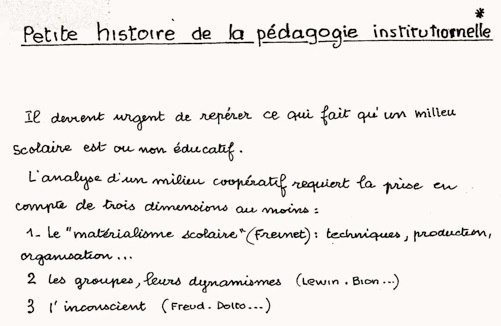 *
Petite histoire de la pédagogie institutionnelle
Il devient urgent de repérer ce qui fait qu'un milieu
scolaire est ou non éducatif.
L'analyse d'un milieu coopératif requiert la prise en
compte de trois dimensions au moins :
1- Le "matérialisme scolaire" (Freinet) : techniques, production,
organisation...
2 les groupes, leurs dynamismes (Lewin . Bion ...)
3 l'inconscient (Freud . Dolto...)